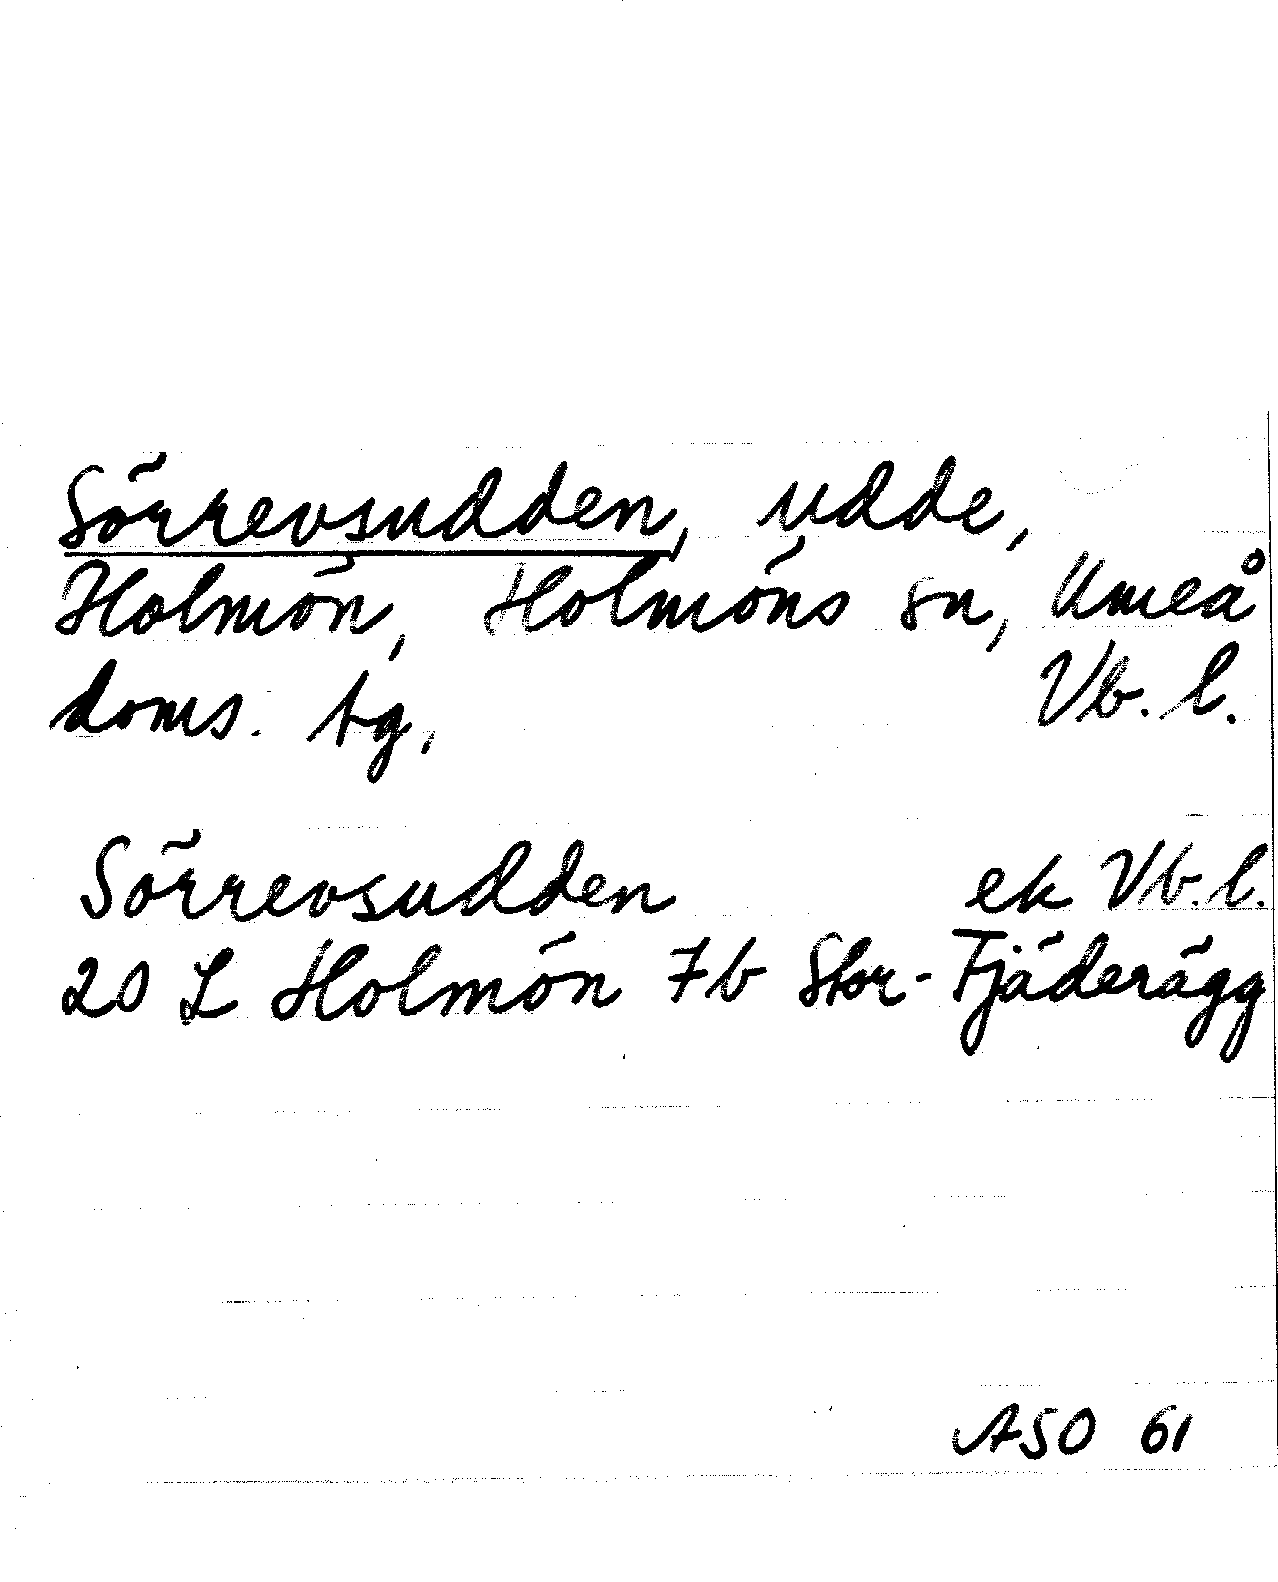 Sörrevsudden, udde,
Holmön, Holmöns sn, Umeå
doms. tg. Vb. l.
Sörrevsudden ek Vb. l.
20 L Holmön 7b Stor-Fjäderägg
ASO 61